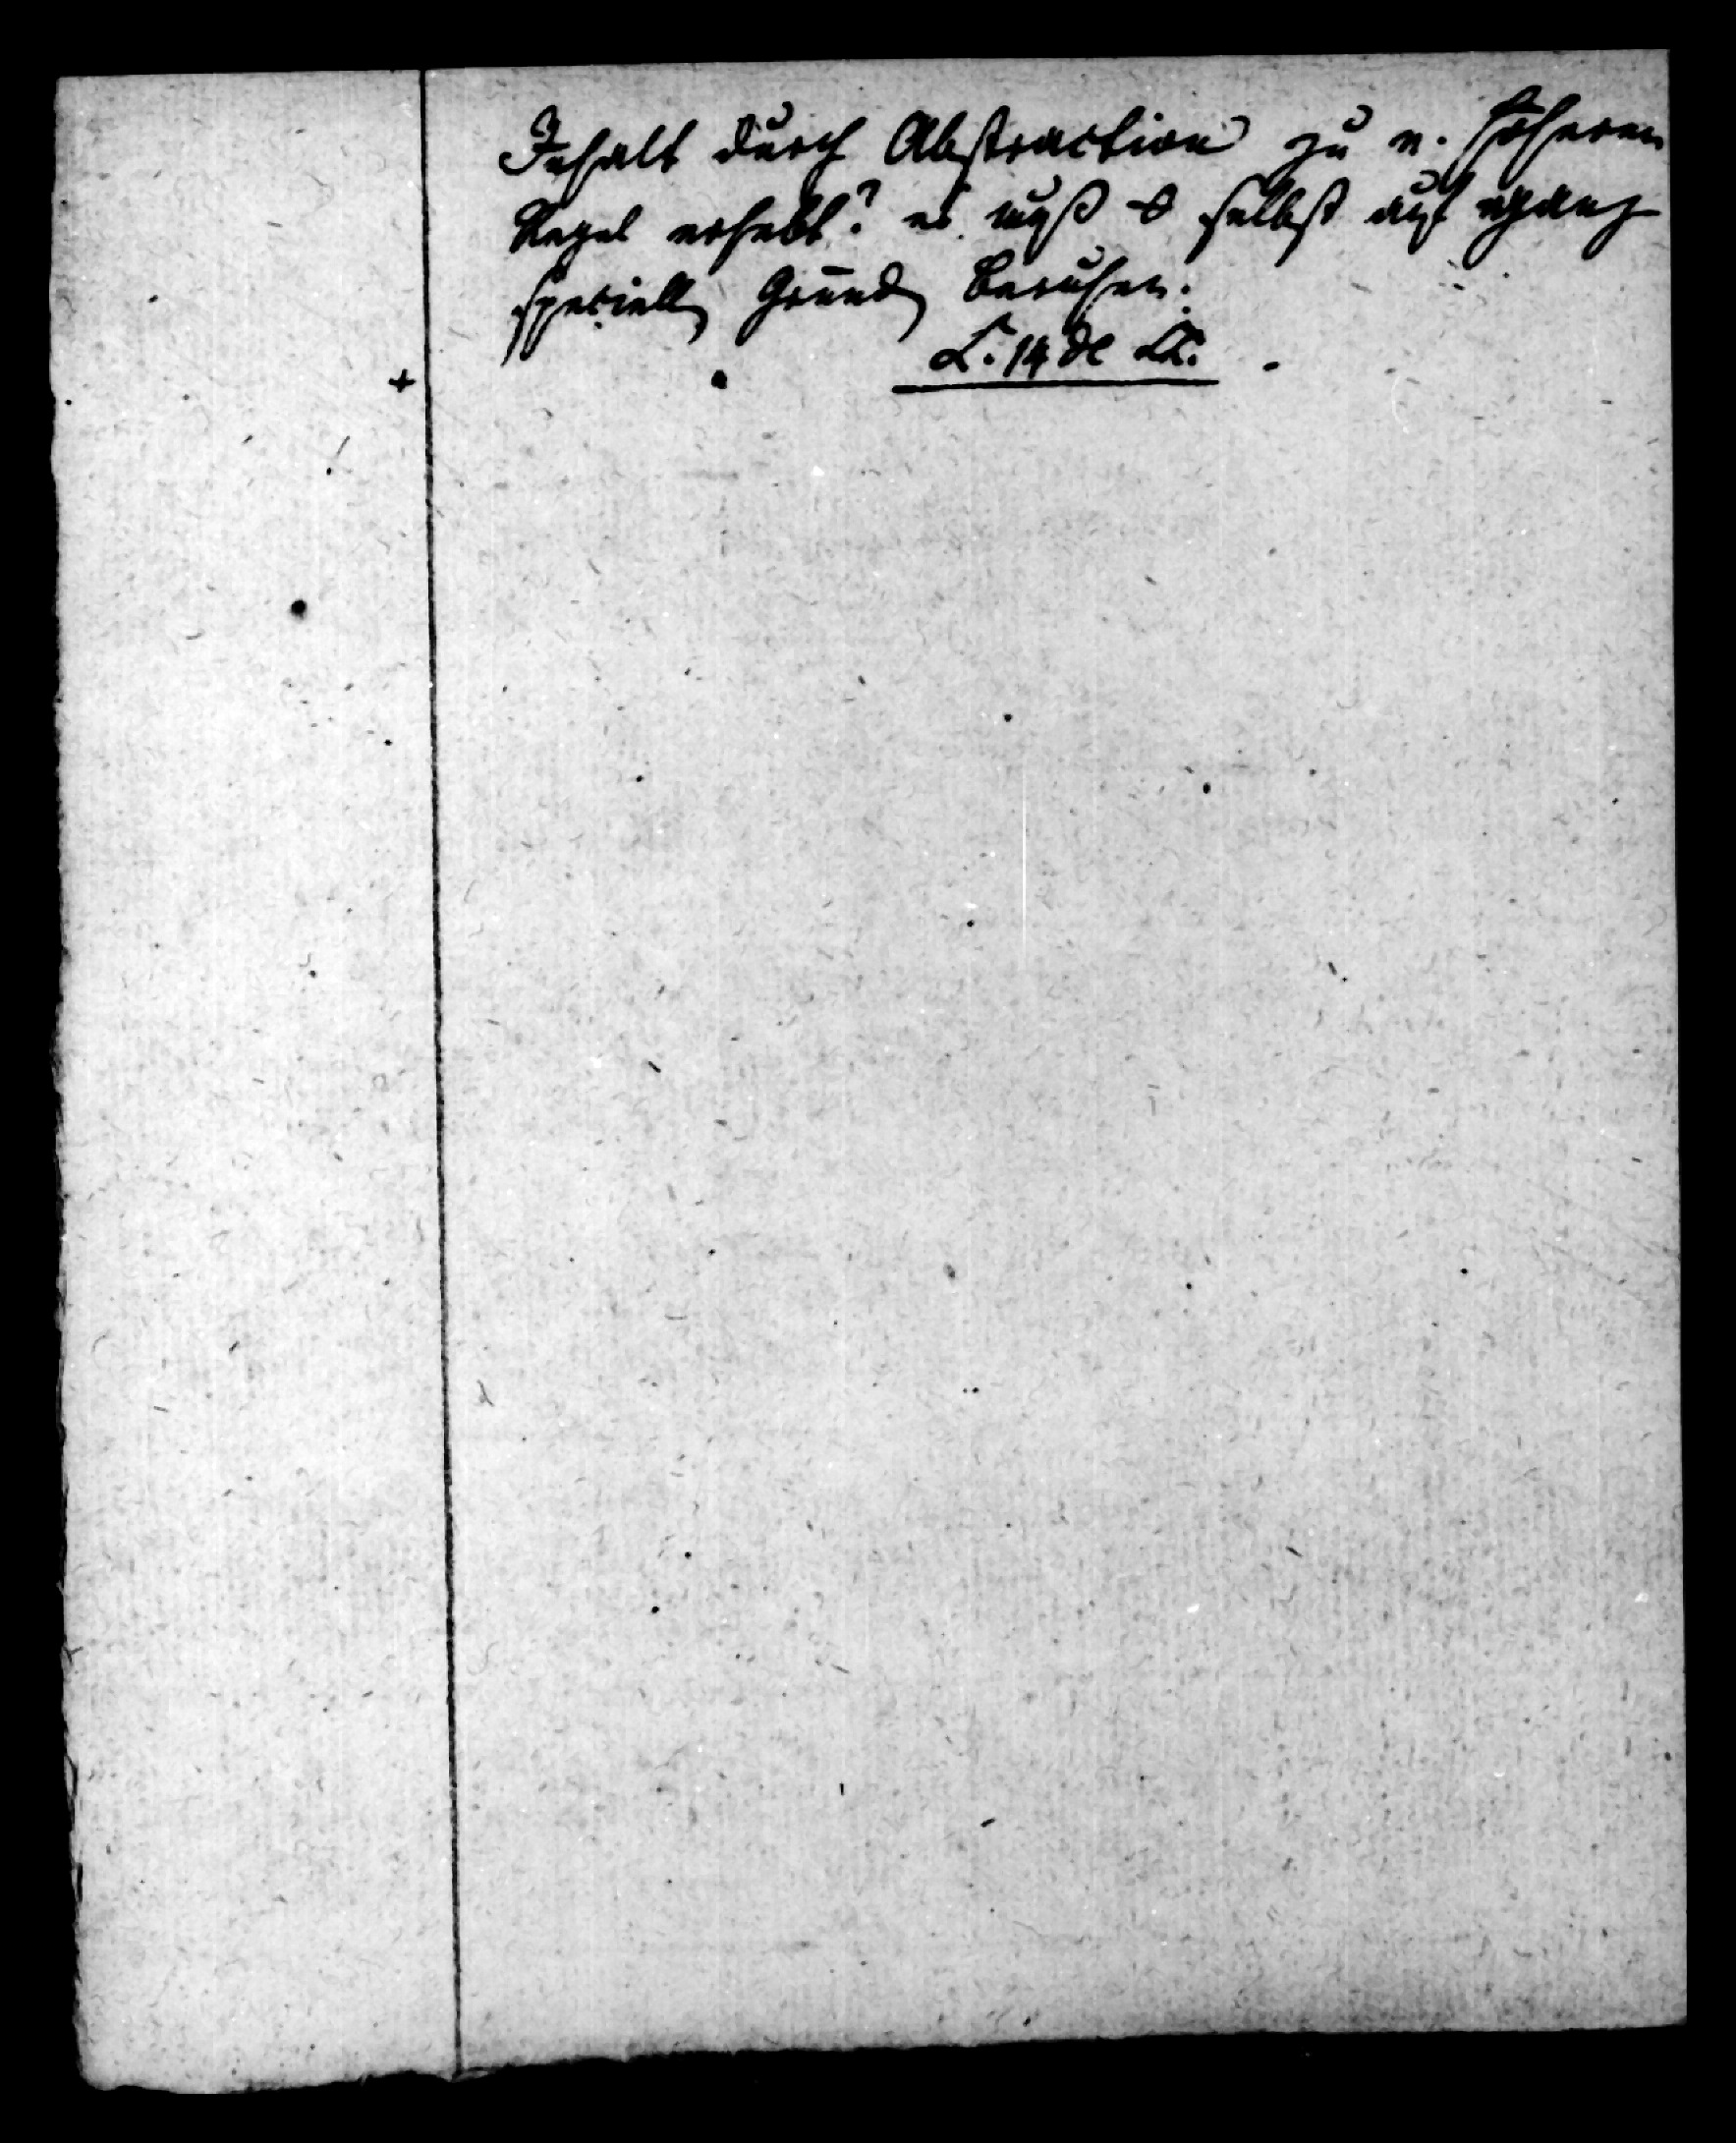 Inhalt durch Abstraction zu e. höheren
Regel erhebt? es muß selbst auf ganz
speciellen Gründen beruhen.
L. 14 de LL.